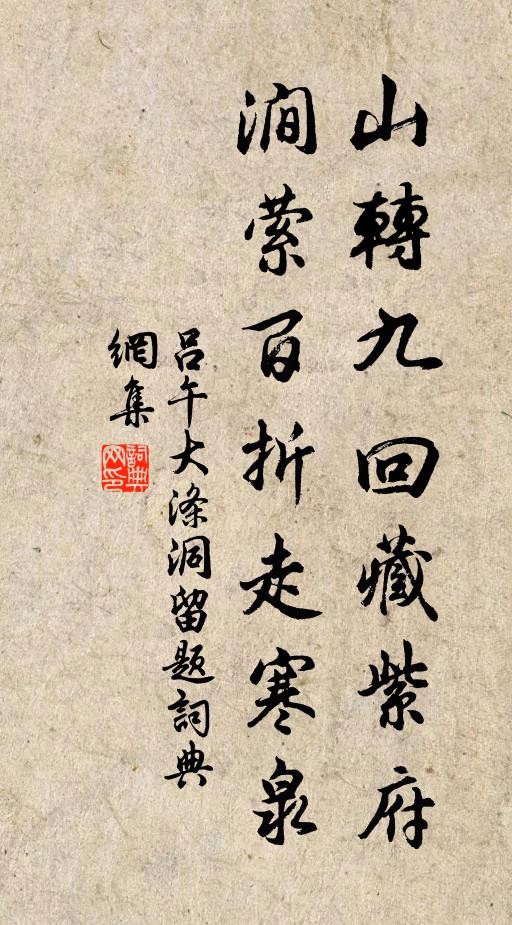 山轉九回藏紫府
澗縈百折走寒泉
呂午大滌洞留題詞典
網集
詞典
网印